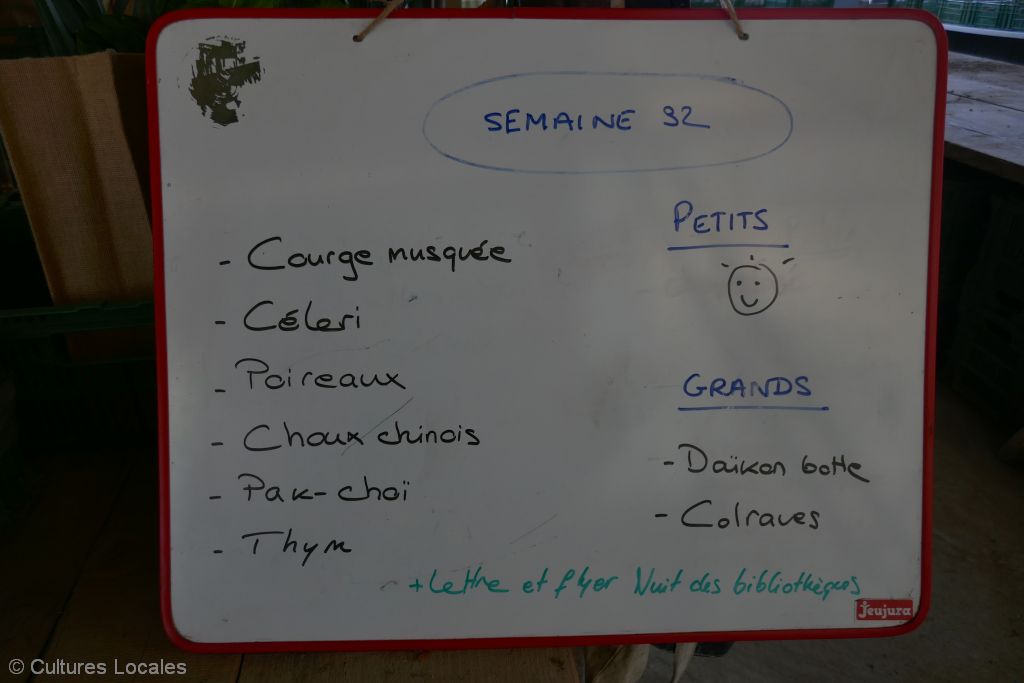 SEMAINE 92
- Courge musquée
- Céleri
- Poireaux
- Choux chinois
- Pak-choï
- Thym
PETITS
GRANDS
- Daïkon botte
- Colraves
+ Lettre et flyer Nuit des bibliothèques
Jeujura
© Cultures Locales